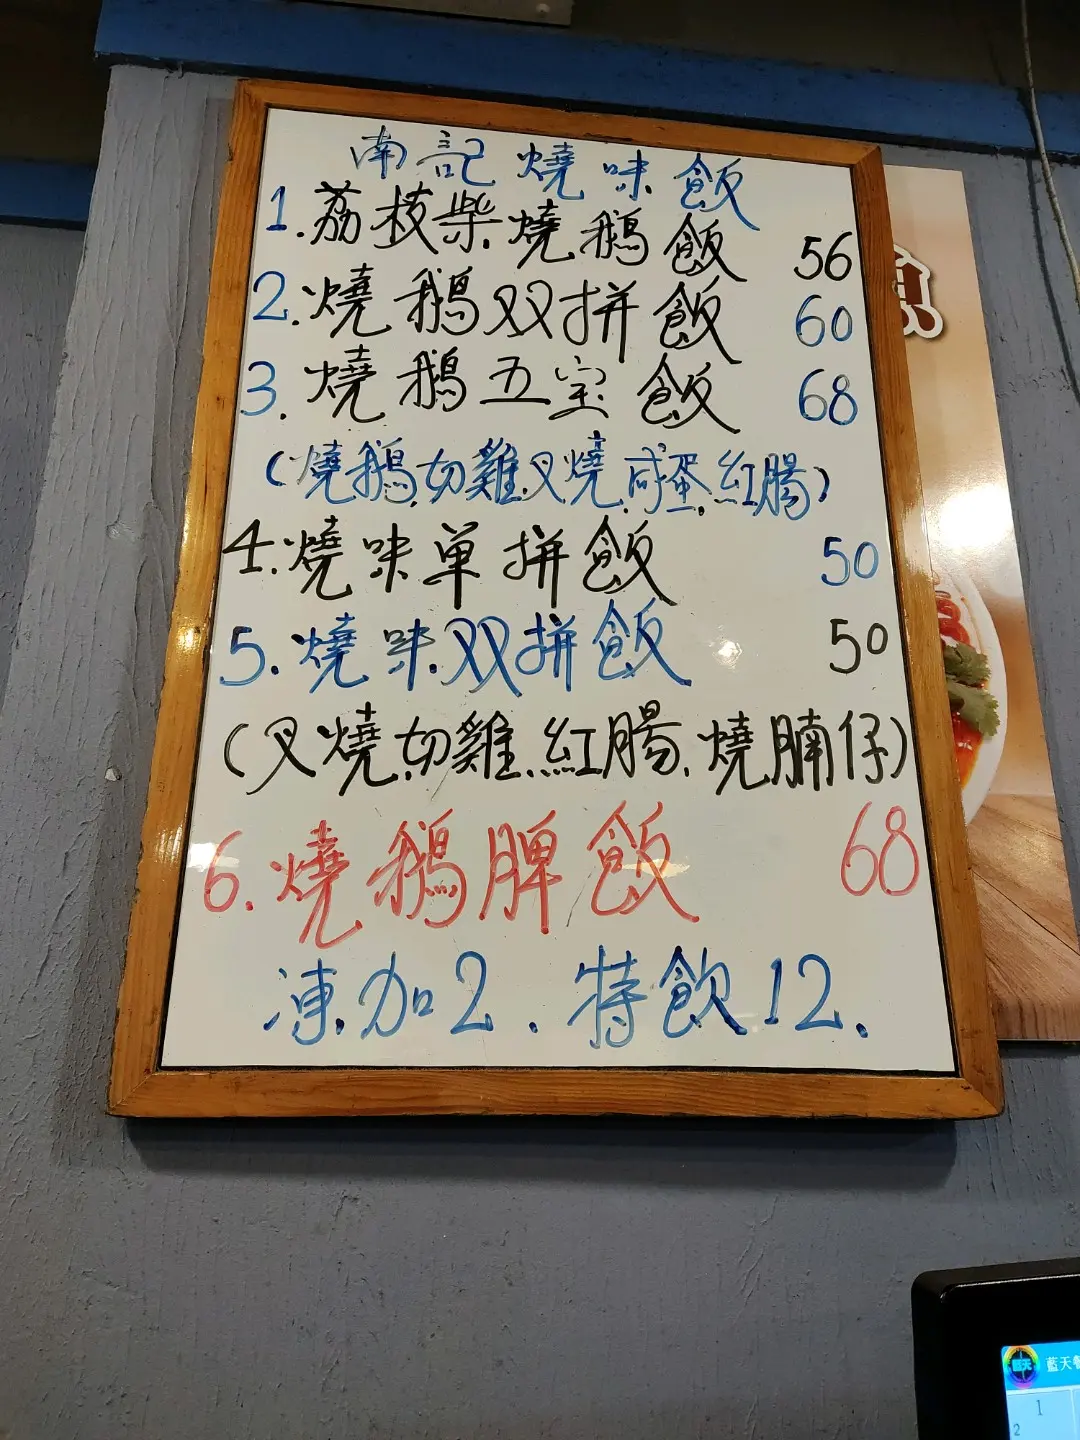 南記燒味飯
1.荔枝柴燒鵝飯 56
2.燒鵝双拼飯 60
3.燒鵝五宝飯 68
(燒鵝.切雞.叉燒.咸蛋.紅腸)
4.燒味單拼飯 50
5.燒味双拼飯 50
(叉燒.切雞.紅腸.燒腩仔)
6.燒鵝脾飯 68
凍加2.特飲12.
藍天
1
2